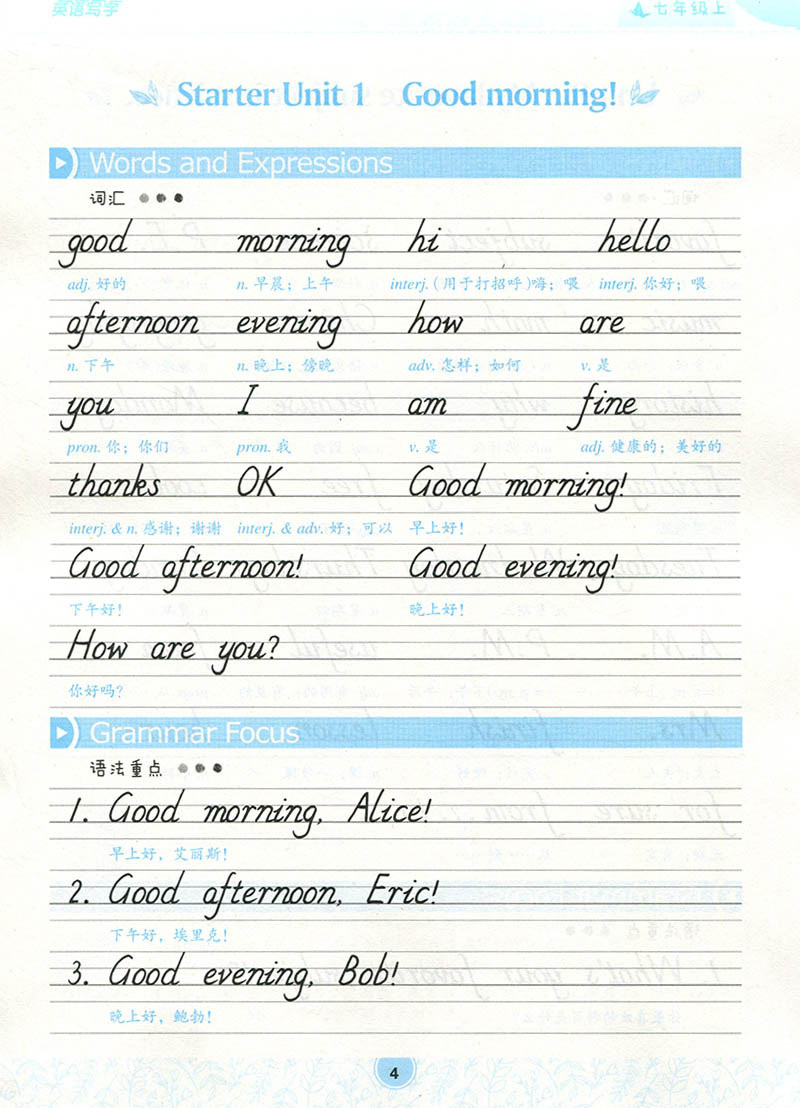 英语写字 七年级上
Starter Unit 1 Good morning!
Words and Expressions
词汇
good morning hi hello
adj. 好的 n. 早晨；上午 interj. (用于打招呼)嗨；喂 interj. 你好；喂
afternoon evening how are
n. 下午 n. 晚上；傍晚 adv. 怎样；如何 v. 是
you I am fine
pron. 你；你们 pron. 我 v. 是 adj. 健康的；美好的
thanks OK Good morning!
interj. & n. 感谢；谢谢 interj. & adv. 好；可以 早上好！
Good afternoon! Good evening!
下午好！ 晚上好！
How are you?
你好吗？
Grammar Focus
语法重点
1. Good morning, Alice!
早上好，艾丽斯！
2. Good afternoon, Eric!
下午好，埃里克！
3. Good evening, Bob!
晚上好，鲍勃！
4